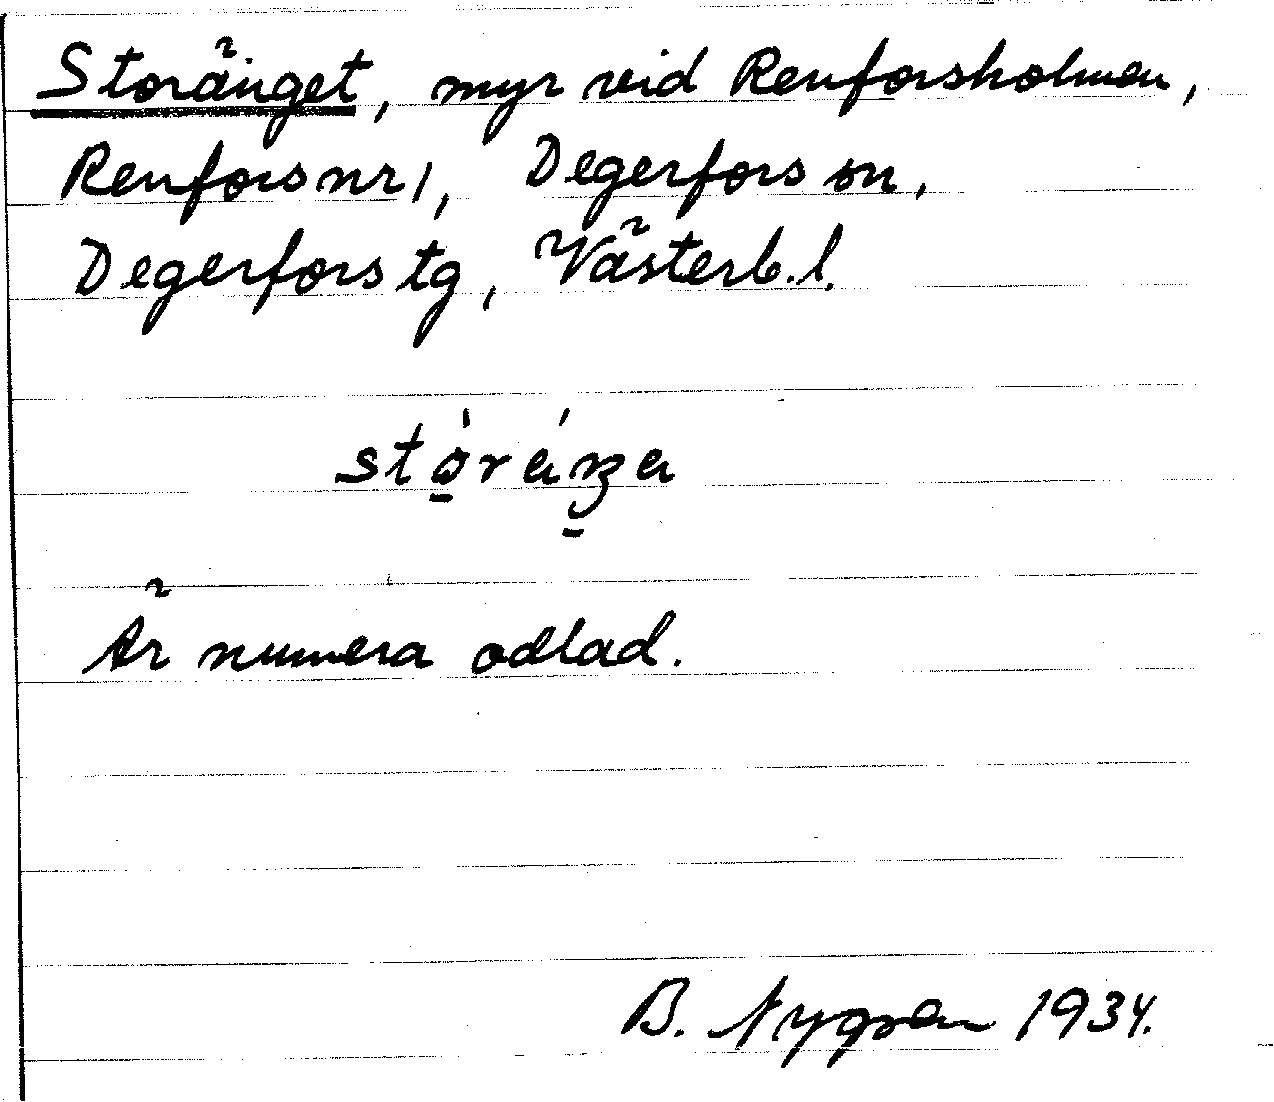 Storänget, myr vid Renforsholmen,
Renfors nr 1, Degerfors sn,
Degerfors tg, Västerb. l.
Är numera odlad.
B. Nygren 1934.